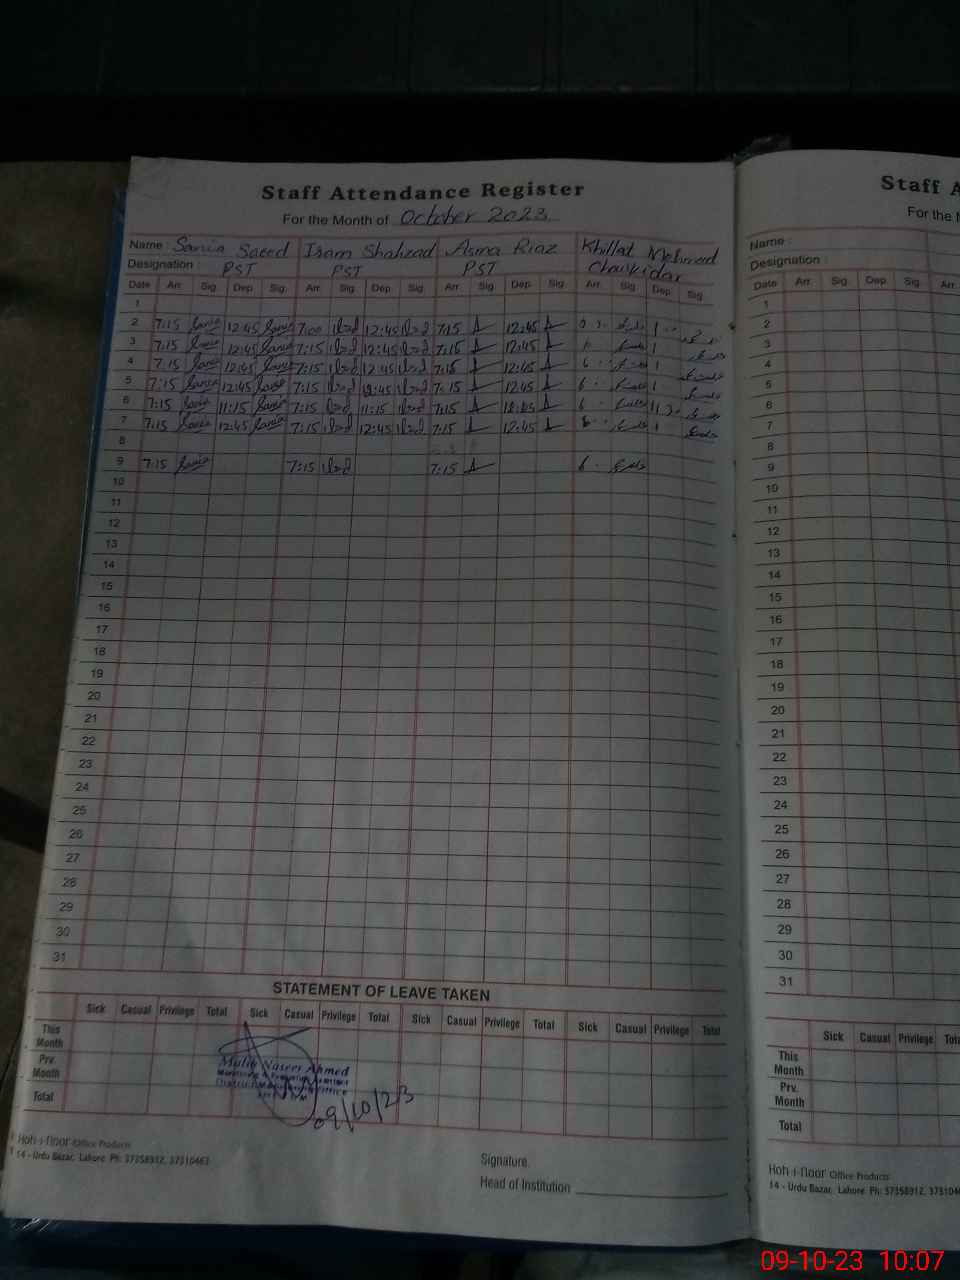 Staff Attendance Register
For the Month of October 2023
Name : Sania Saeed Iram Shahzad Asma Riaz Khillat Mehmood
Designation : PST PST PST Chowkidar
Date Arr. Sig. Dep. Sig. Arr. Sig. Dep. Sig. Arr. Sig. Dep. Sig. Arr. Sig. Dep. Sig.
1
2 7:15 Sania 12:45 Sania 7:00 12:45 7:15 12:45
3 7:15 Sania 12:45 Sania 7:15 12:45 7:15 12:45 1
4 7:15 Sania 12:45 Sania 7:15 12:45 7:15 12:45 6 1
5 7:15 Sania 12:45 Sania 7:15 12:45 7:15 12:45 6 1
6 7:15 Sania 11:15 Sania 7:15 11:15 7:15 6
7 7:15 Sania 12:45 Sania 7:15 12:45 7:15 12:45 1
8
9 7:15 Sania 7:15 7:15 6
10
11
12
13
14
15
16
17
18
19
20
21
22
23
24
25
26
27
28
29
30
31
STATEMENT OF LEAVE TAKEN
Sick Casual Privilege Total Sick Casual Privilege Total Sick Casual Privilege Total Sick Casual Privilege Total
This Month
Prv. Month
Total
Malik Naseer Ahmed
09/10/23
Koh-i-Noor Office Products
14 - Urdu Bazar, Lahore Ph: 37358912, 37310463
Signature.
Head of Institution
Staff A
For the M
Name :
Designation :
Date Arr. Sig. Dep. Sig. Arr.
1
2
3
4
5
6
7
8
9
10
11
12
13
14
15
16
17
18
19
20
21
22
23
24
25
26
27
28
29
30
31
Sick Casual Privilege Tota
This Month
Prv. Month
Total
Koh-i-Noor Office Products
14 - Urdu Bazar, Lahore Ph: 37358912, 3731046
09-10-23 10:07